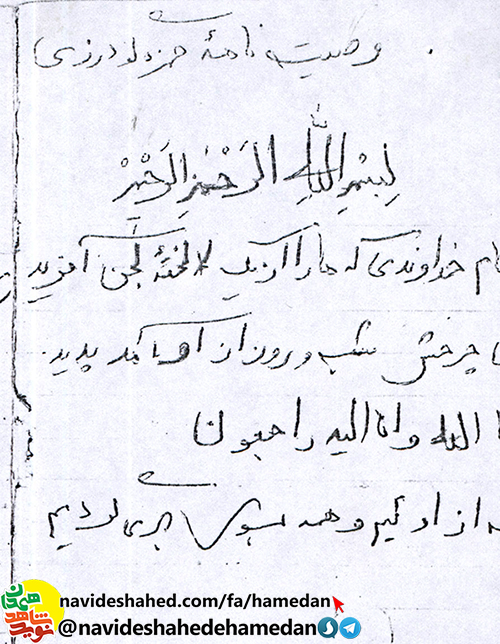 وصیت نامهٔ حمزه لودرزی
بِسْمِ اللَّهِ الرَّحْمٰنِ الرَّحِیْمِ
ام خداوندی که ما را از یک لخته لجن آفرید
چرخش شب و روز از او آمد پدید
اللله وانا الیه راجعون
از اوئیم و همه بسوی برمی لردیم
navideshahed.com/fa/hamedan
@navideshahedehamedan
نوید شاهد همدان